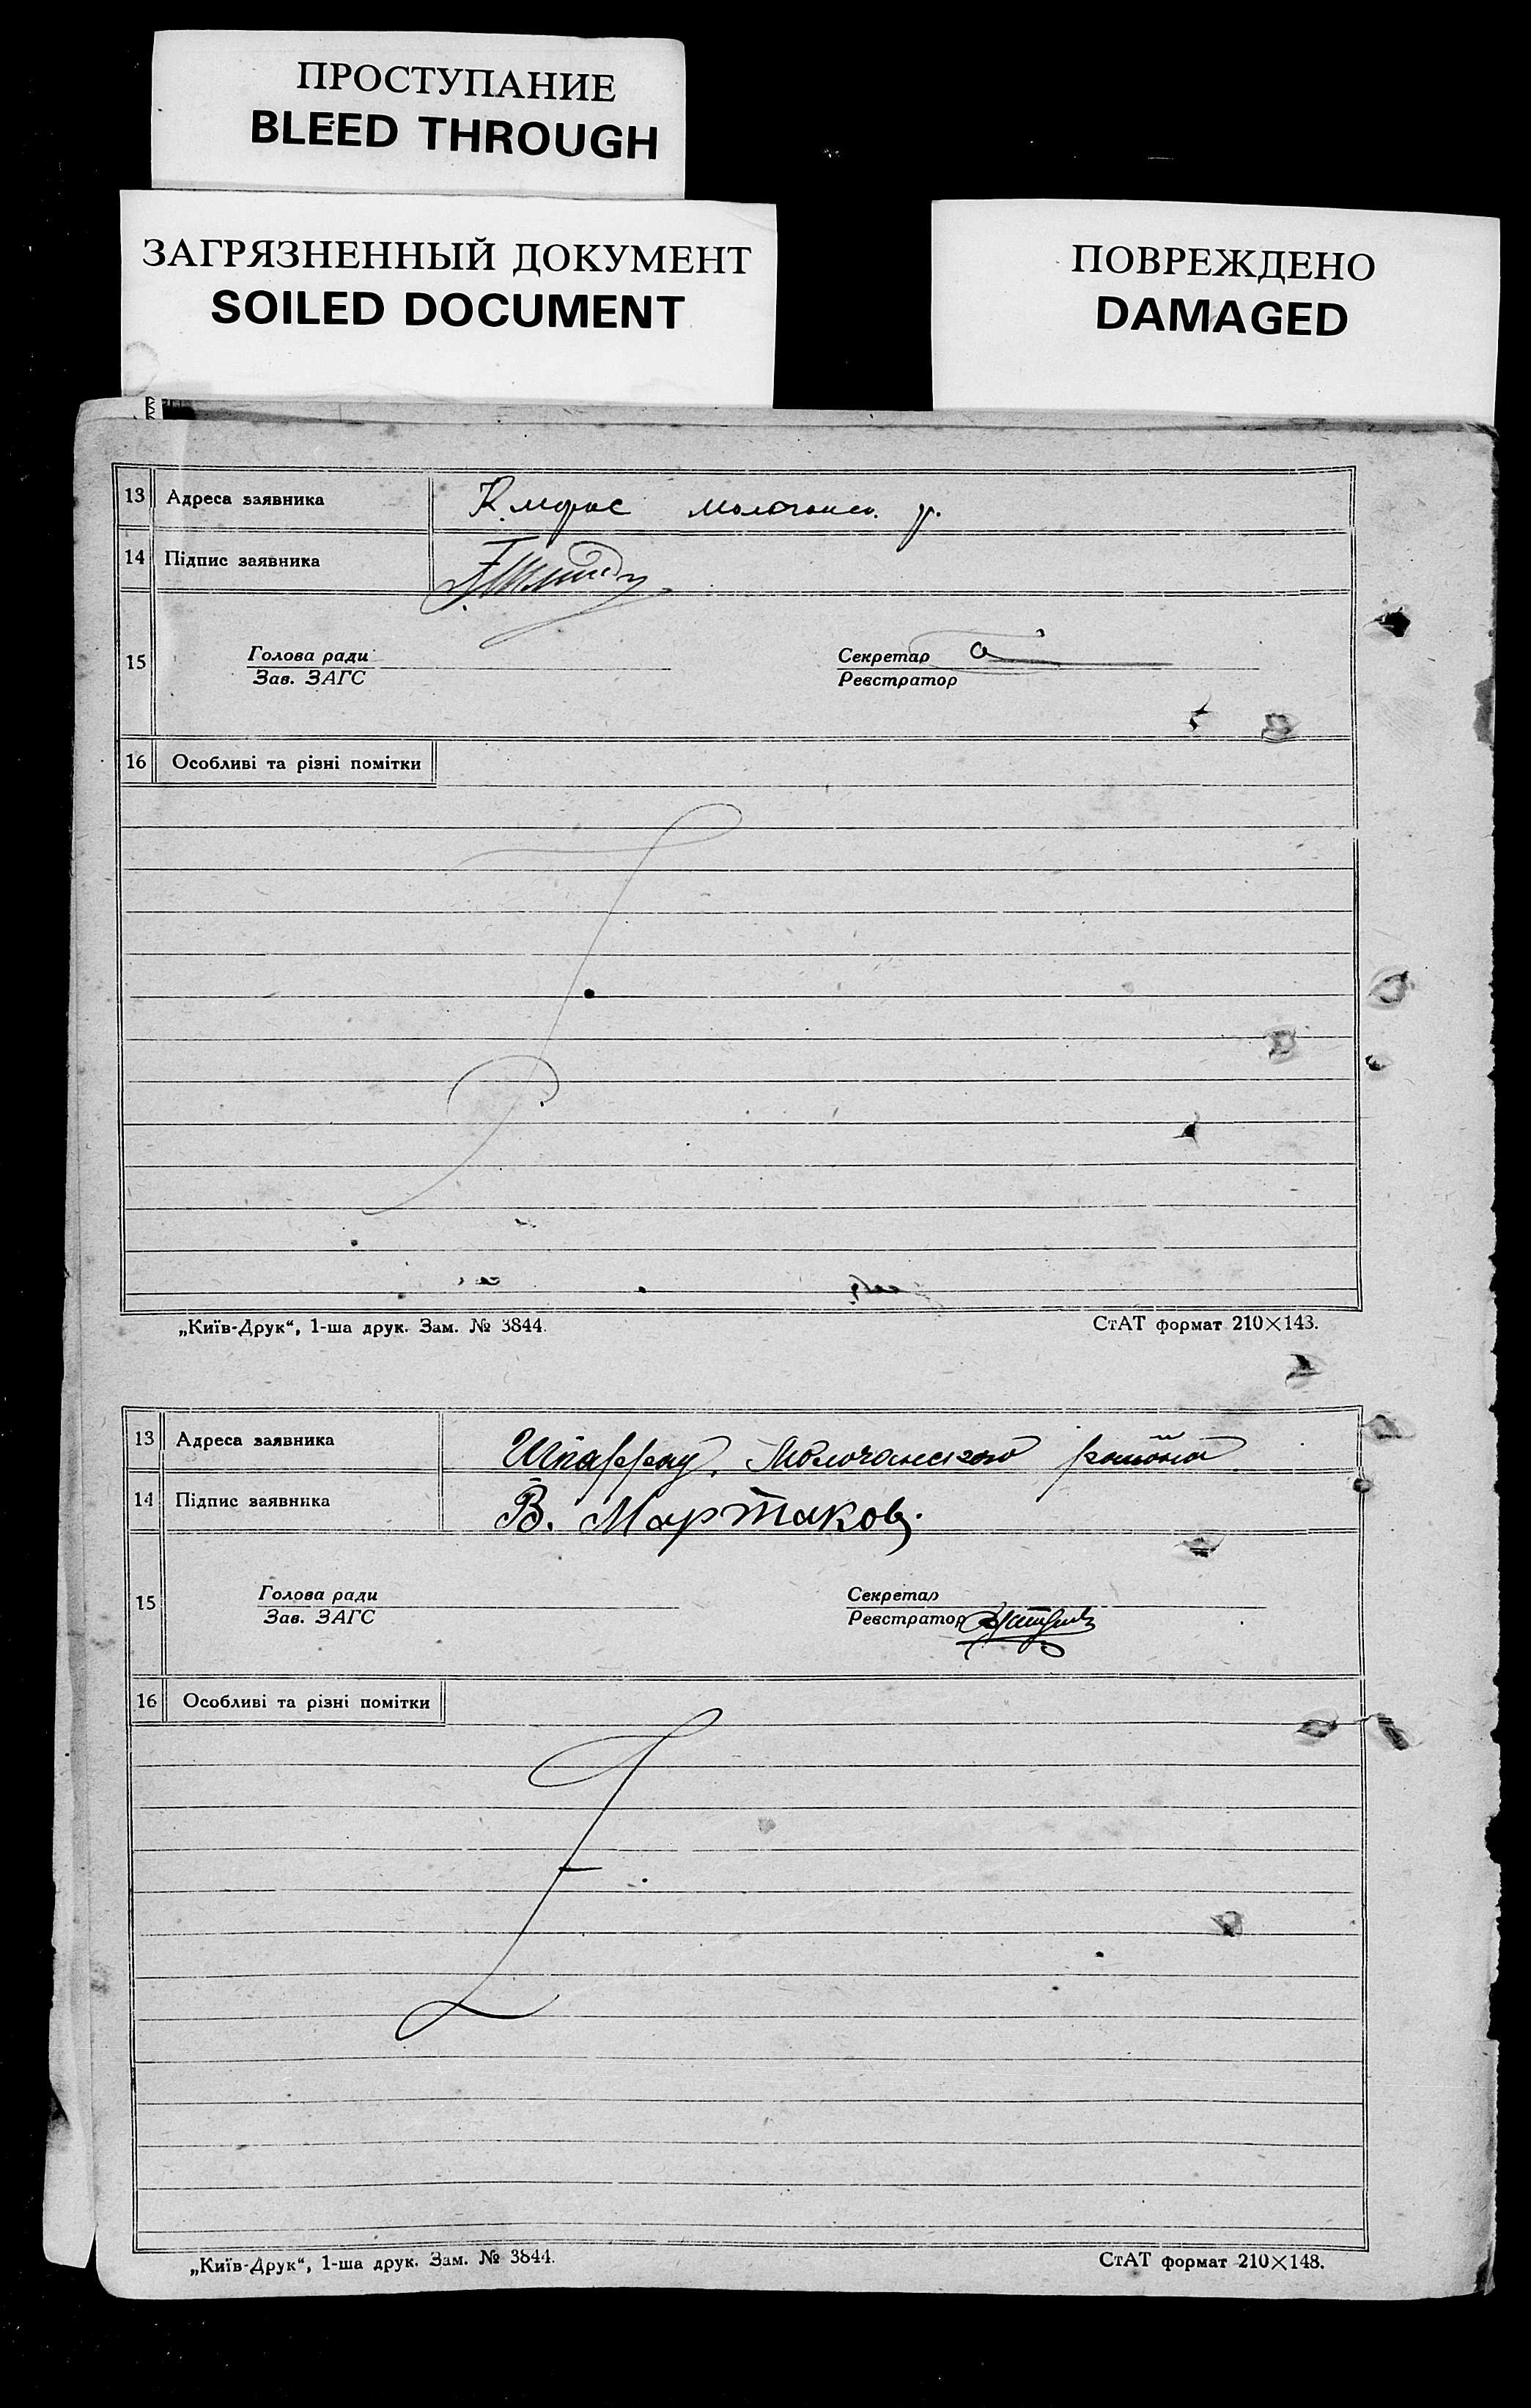 ПРОСТУПАНИЕ
BLEED THROUGH
ЗАГРЯЗНЕННЫЙ ДОКУМЕНТ
SOILED DOCUMENT
ПОВРЕЖДЕНО
DAMAGED
13 Адреса заявника
14 Підпис заявника
15 Голова ради Секретар
Зав. ЗАГС Реєстратор
16 Особливі та різні помітки
„Київ-Друк“, 1-ша друк. Зам. № 3844. СтАТ формат 210×143.
13 Адреса заявника Молочанского района
14 Підпис заявника В. Мартаков.
15 Голова ради Секретар
Зав. ЗАГС Реєстратор
16 Особливі та різні помітки
„Київ-Друк“, 1-ша друк. Зам. № 3844. СтАТ формат 210×148.